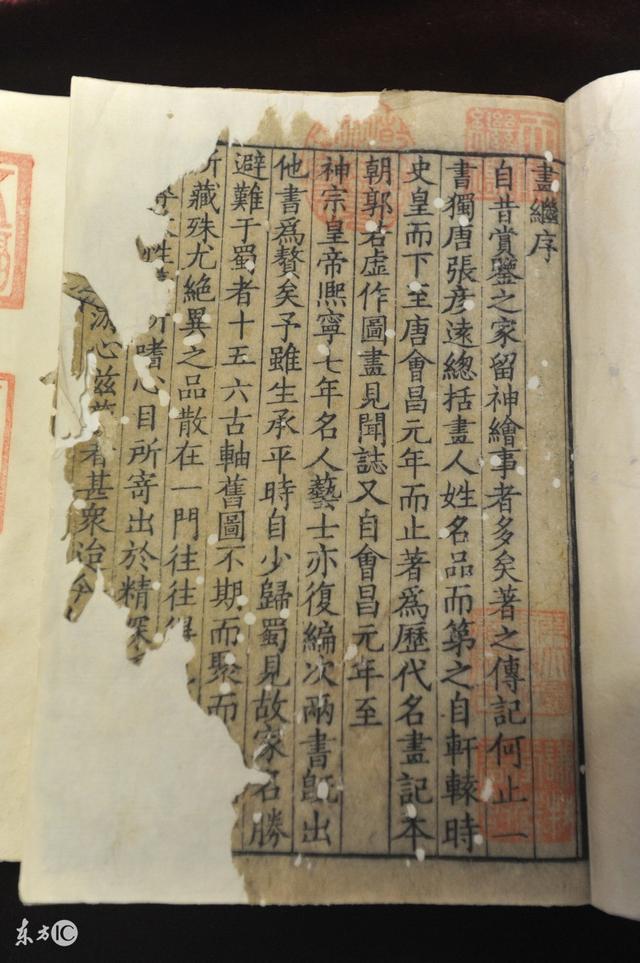 畫繼序
自昔賞鑒之家留神繪事者多矣著之傳記何止一
書獨唐張彥遠總括畫人姓名品而第之自軒轅時
史皇而下至唐會昌元年而止著爲歷代名畫記本
朝郭若虛作圖畫見聞誌又自會昌元年至
神宗皇帝熙寧七年名人藝士亦復編次兩書旣出
他書爲贅矣予雖生承平時自少歸蜀見故家名勝
避難于蜀者十五六古軸舊圖不期而聚而
所藏殊尤絶異之品散在一門往往得
性所嗜心目所寄出於精深
游心兹藝者甚衆迨今
东方IC